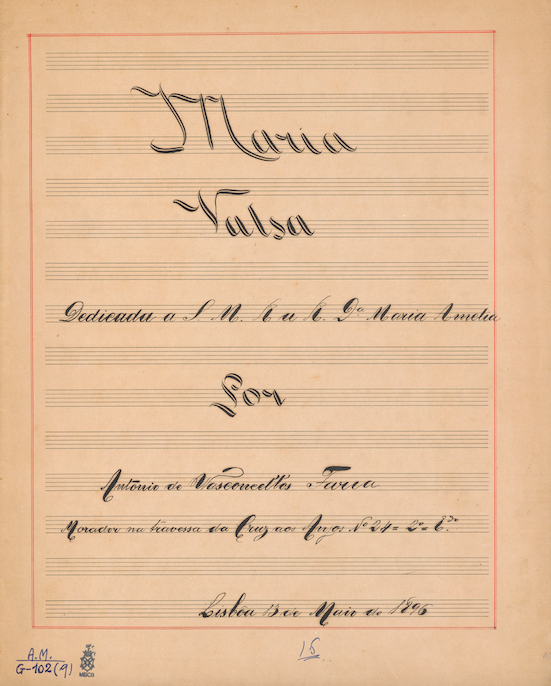 Maria
Valsa
Dedicada a S. M. R a R. Dª Maria Amelia
Por
Antonio de Vasconcellos Faria
Morador na travessa da Cruz aos Anjos Nº 24 = 2º = E.do
Lisboa 13 de Maio de 1896
16
A.M.
G-102(9)
MBCB